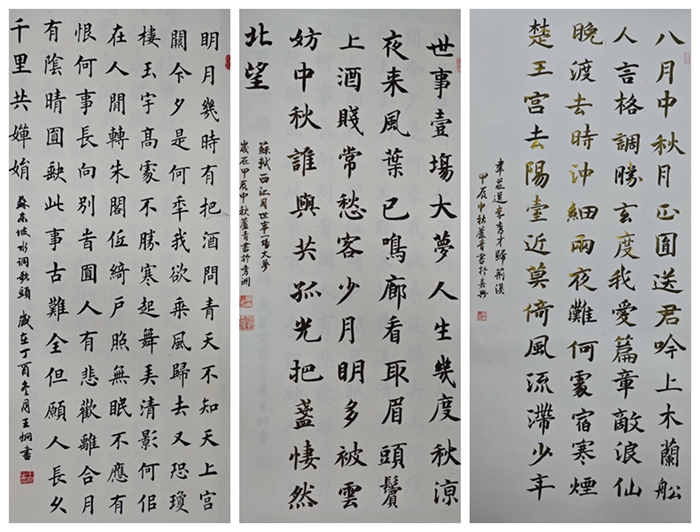 明月幾時有把酒問青天不知天上宮
闕今夕是何年我欲乘風歸去又恐瓊
樓玉宇高處不勝寒起舞弄清影何佀
在人間轉朱閣低綺戶照無眠不應有
恨何事長向別旹圓人有悲歡離合月
有陰晴圓缺此事古難全但願人長久
千里共嬋娟
蘇東坡水调歌頭 歲在丁酉冬月王炯書
世事壹場大夢人生幾度秋涼
夜来風葉已鳴廊看取眉頭鬢
上酒賤常愁客少月明多被雲
妨中秋誰與共孤光把盞悽然
北望
蘇軾西江月世事一場大夢
歲在甲辰中秋蘆青書於秀洲
八月中秋月正圓送君吟上木蘭舩
人言格調勝玄度我愛篇章敵浪仙
晚渡去時沖細雨夜灘何處宿寒煙
楚王宮去陽臺近莫倚風流滯少年
韋莊送李秀才歸荊溪
甲辰中秋蘆青書於嘉興